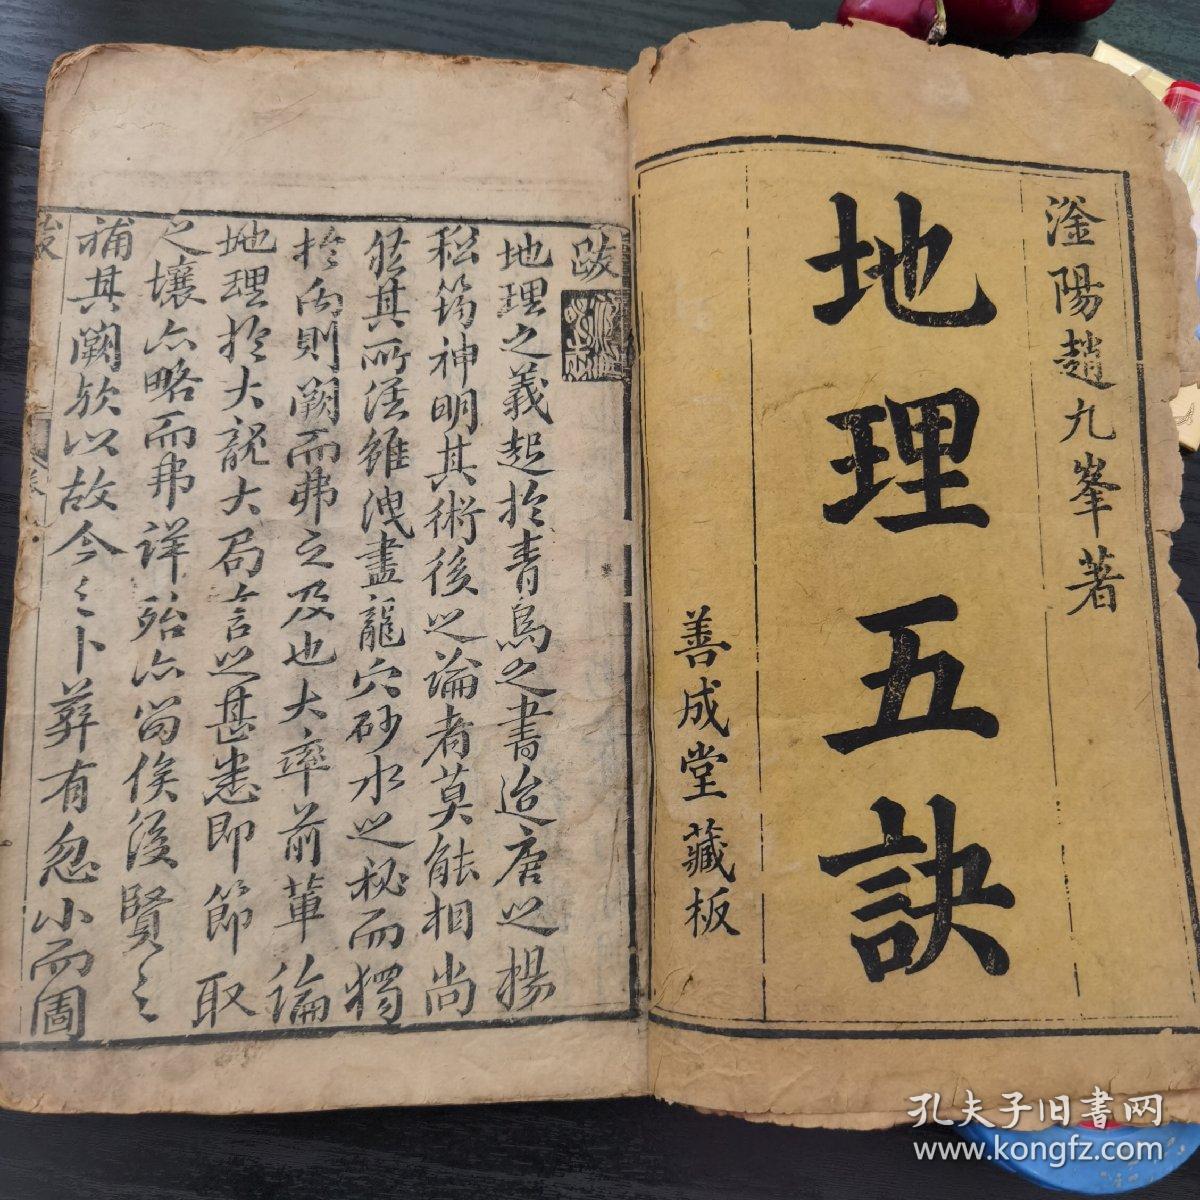 滏陽趙九峯著
地理五訣
善成堂藏板
跋
地理之義起於青烏之書迨唐之楊
松筠神明其術後之論者莫能相尚
於其所添雖洩盡龍穴砂水之秘而獨
於向則闕而弗之及也大率前輩論
地理於大龍大局言之甚悉即節取
之壤亦略而弗詳殆亦留俟後賢之
補其闕欤以故今之卜葬有忽小而圖
跋
孔夫子旧書网
www.kongfz.com